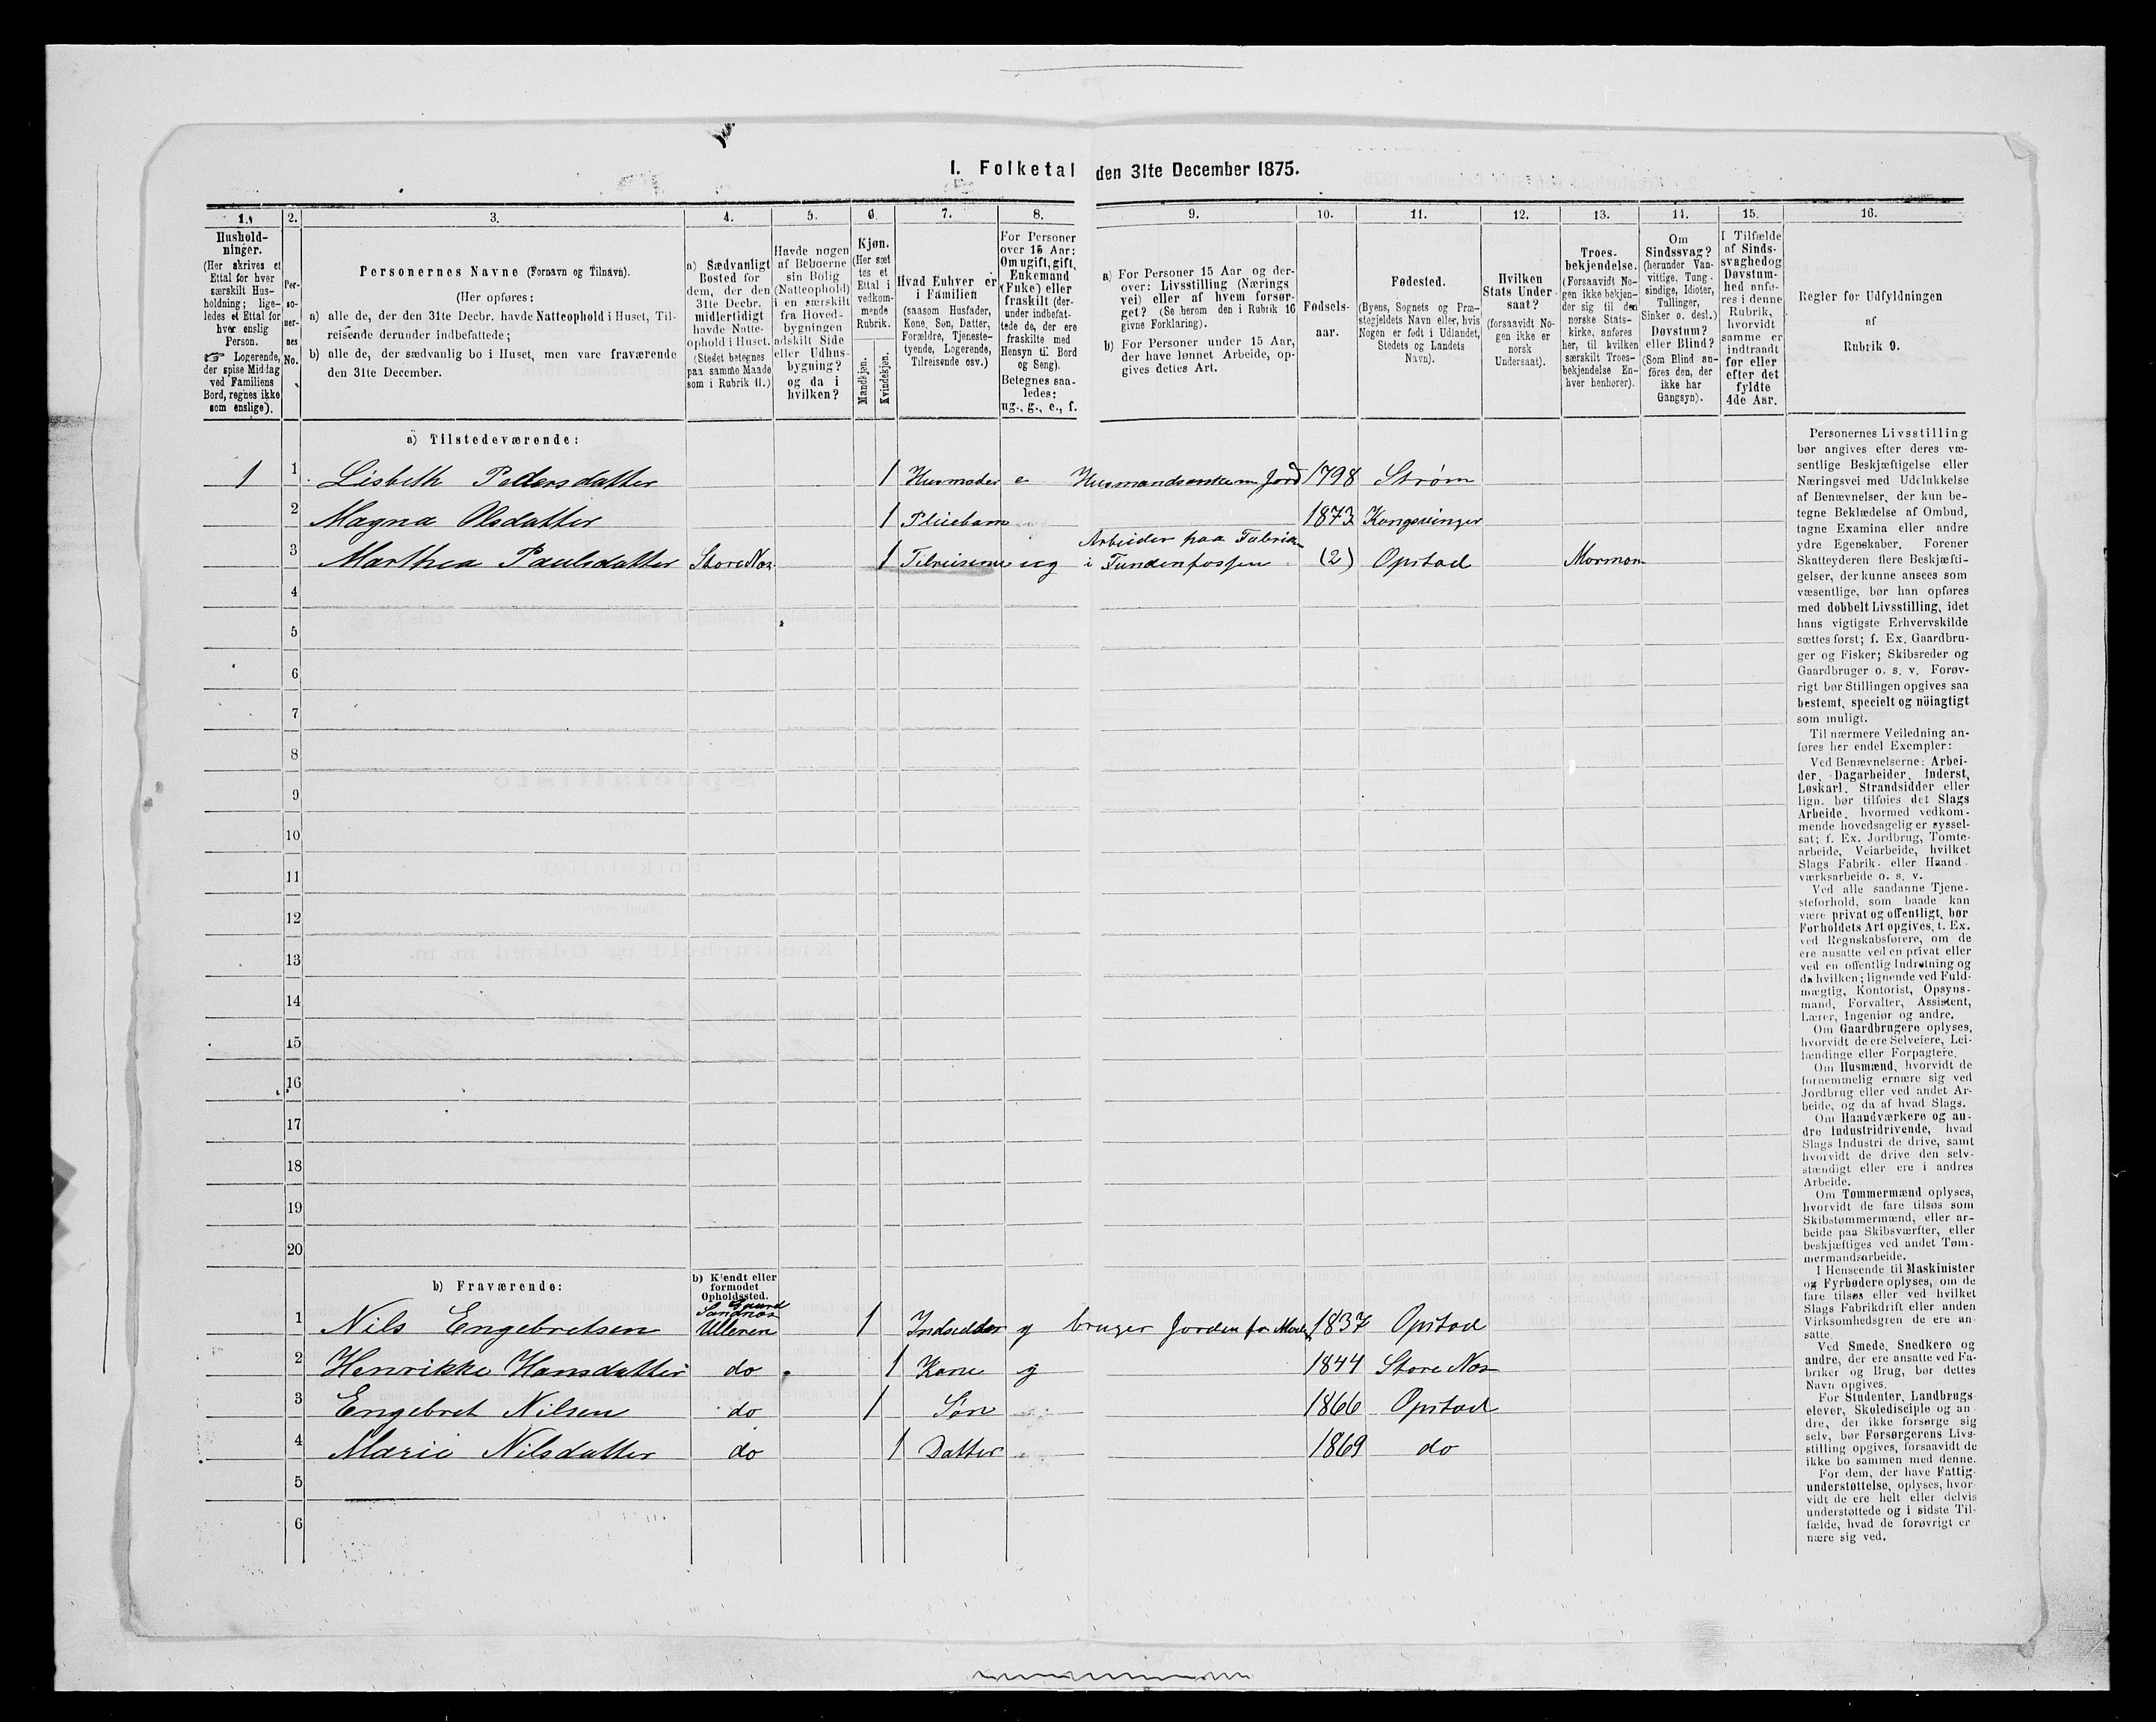 I. Folketal den 31te December 1875.
1.
2.
3.
4.
5.
6.
7.
8.
9.
10.
11.
12.
13.
14.
15.
16.
Hushold-
ninger.
(Her skrives et
Ettal for hver
særskilt Hus-
holdning; lige-
ledes et Ettal for
hver enslig
Person.
☞ Logerende,
der spise Middag
ved Familiens
Bord, regnes ikke
som enslige).
Per-
so-
ner-
nes
No.
Personernes Navne (Fornavn og Tilnavn).
(Her opføres:
a) alle de, der den 31te Decbr. havde Natteophold i Huset, Til-
reisende derunder indbefattede;
b) alle de, der sædvanlig bo i Huset, men vare fraværende
den 31te December.
a) Sædvanligt
Bosted for
dem, der den
31te Decbr.
midlertidigt
havde Natte-
ophold i Huset.
(Stedet betegnes
paa samme Maade
som i Rubrik 11.)
Havde nogen
af Beboerne
sin Bolig
(Natteophold)
i en særskilt
fra Hoved-
bygningen
adskilt Side
eller Udhus-
bygning?
og da i
hvilken?
Kjøn.
(Her sæt
tes et
Ettal i
vedkom-
mende
Rubrik.
Mandkjøn.
Kvindekjøn.
Hvad Enhver er
i Familien
(saasom Husfader,
Kone, Søn, Datter,
Forældre, Tjeneste-
tyende, Logerende,
Tilreisende osv.)
For Personer
over 15 Aar:
Om ugift, gift,
Enkemand
(Enke) eller
fraskilt (der-
under indbefat-
tede de, der ere
fraskilte med
Hensyn til Bord
og Seng).
Betegnes saa-
ledes:
ug., g., e., f.
a) For Personer 15 Aar og der-
over: Livsstilling (Nærings
vei) eller af hvem forsør-
get? (Se herom den i Rubrik 16
givne Forklaring).
b) For Personer under 15 Aar,
der have lønnet Arbeide, op-
gives dettes Art.
Fødsels-
aar.
Fødested.
(Byens, Sognets og Præ-
stegjeldets Navn eller, hvis
Nogen er født i Udlandet,
Stedets og Landets
Navn).
Hvilken
Stats Under-
saat?
(forsaavidt No-
gen ikke er
norsk
Undersaat).
Troes-
bekjendelse.
(Forsaavidt No-
gen ikke bekjen-
der sig til den
norske Stats-
kirke, anføres
her, til hvilken
særskilt Troes-
bekjendelse En-
hver henhører).
Om
Sindssvag?
(herunder Van-
vittige, Tung-
sindige, Idioter,
Tullinger,
Sinker o. desl.)
Døvstum?
eller Blind?
(Som Blind an-
föres den, der
ikke har
Gangsyn).
I Tilfælde
af Sinds-
svaghedog
Døvstum-
hed anfø-
res i denne
Rubrik,
hvorvidt
samme er
indtraadt
før eller
efter det
fyldte
4de Aar.
Regler for Udfyldningen
af
Rubrik 9.
a) Tilstedeværende:
1 1 Lisbeth Pedersdatter 1 Husmoder e Husmandsenke m Jord 1798 Strøm
2 Magna Olsdatter 1 Pleiebarn 1873 Kongsvinger
3 Marthea Paulsdatter Store Næs 1 Tilreisene ug Arbeider paa Fabrik
i Fundenfossen (2) Opstad Mormon
4
5
6
7
8
9
10
11
12
13
14
15
16
17
18
19
20
b) Fraværende:
b) Kjendt eller
formodet
Opholdssted.
Gaard
Sandnæs
1 Nils Engebretsen Ulleren 1 Indsidder g bruger Jorden for Moder 1837 Opstad
2 Henrikke Hansdatter do 1 Kone g 1844 Store Næs
3 Engebret Nilsen do 1 Søn 1866 Opstad
4 Marie Nilsdatter do 1 Datter 1869 do
5
6
Personernes Livsstilling
bør angives efter deres væ-
sentlige Beskjæftigelse eller
Næringsvei med Udelukkelse
af Benævnelser, der kun be-
tegne Beklædelse af Ombud,
tagne Examina eller andre
ydre Egenskaber. Forener
Skatteyderen flere Beskjæfti-
gelser, der kunne ansees som
væsentlige, bør han opføres
med dobbelt Livsstilling, idet
hans vigtigste Erhvervskilde
sættes først; f. Ex. Gaardbru-
ger og Fisker; Skibsreder og
Gaardbruger o. s. v. Forøv-
rigt bør Stillingen opgives saa
bestemt, specielt og nöiagtigt
som muligt.
Til nærmere Veiledning an-
føres her endel Exempler:
Ved Benævnelserne: Arbei-
der, Dagarbeider, Inderst,
Løskarl, Strandsidder eller
lign. bør tilføies det Slags
Arbeide, hvormed vedkom-
mende hovedsagelig er syssel-
sat; f. Ex. Jordbrug, Tomte-
arbeide, Veiarbeide, hvilket
Slags Fabrik- eller Haand-
værksarbeide o. s. v.
Ved alle saadanne Tjene-
steforhold, som baade kan
være privat og offentligt, bør
Forholdets Art opgives, t. Ex.
ved Regnskabsførere, om de
ere ansatte ved en privat eller
ved en offentlig Indretning og
da hvilken; lignende ved Fuld-
mægtig, Kontorist, Opsyns-
mand, Forvalter, Assistent,
Lærer, Ingeniør og andre.
Om Gaardbrugere oplyses,
hvorvidt de ere Selveiere, Lei-
lændinge eller Forpagtere.
Om Husmænd, hvorvidt de
fornemmelig ernære sig ved
Jordbrug eller ved andet Ar-
beide, og da af hvad Slags.
Om Haandværkere og an-
dre Industridrivende, hvad
Slags Industri de drive, samt
hvorvidt de drive den selv-
stændigt eller ere i andres
Arbeide.
Om Tømmermænd oplyses,
hvorvidt de fare tilsøs som
Skibstømmermænd, eller ar-
beide paa Skibsværfter, eller
beskjæftiges ved andet Tøm-
mermandsarbeide.
I Henseende til Maskinister
og Fyrbødere oplyses, om de
fare tilsøs eller ved hvilket
Slags Fabrikdrift eller anden
Virksomhedsgren de ere an-
satte.
Ved Smede, Snedkere og
andre, der ere ansatte ved Fa-
briker og Brug, bør dettes
Navn opgives.
For Studenter, Landbrugs-
elever, Skoledisciple og an-
dre, der ikke forsørge sig
selv, bør Forsørgerens Livs-
stilling opgives, forsaavidt de
ikke bo sammen med denne.
For dem, der have Fattig-
understøttelse, oplyses, hvor-
vidt de ere helt eller delvis
understøttede og i sidste Til-
fælde, hvad de forøvrigt er-
nære sig ved.